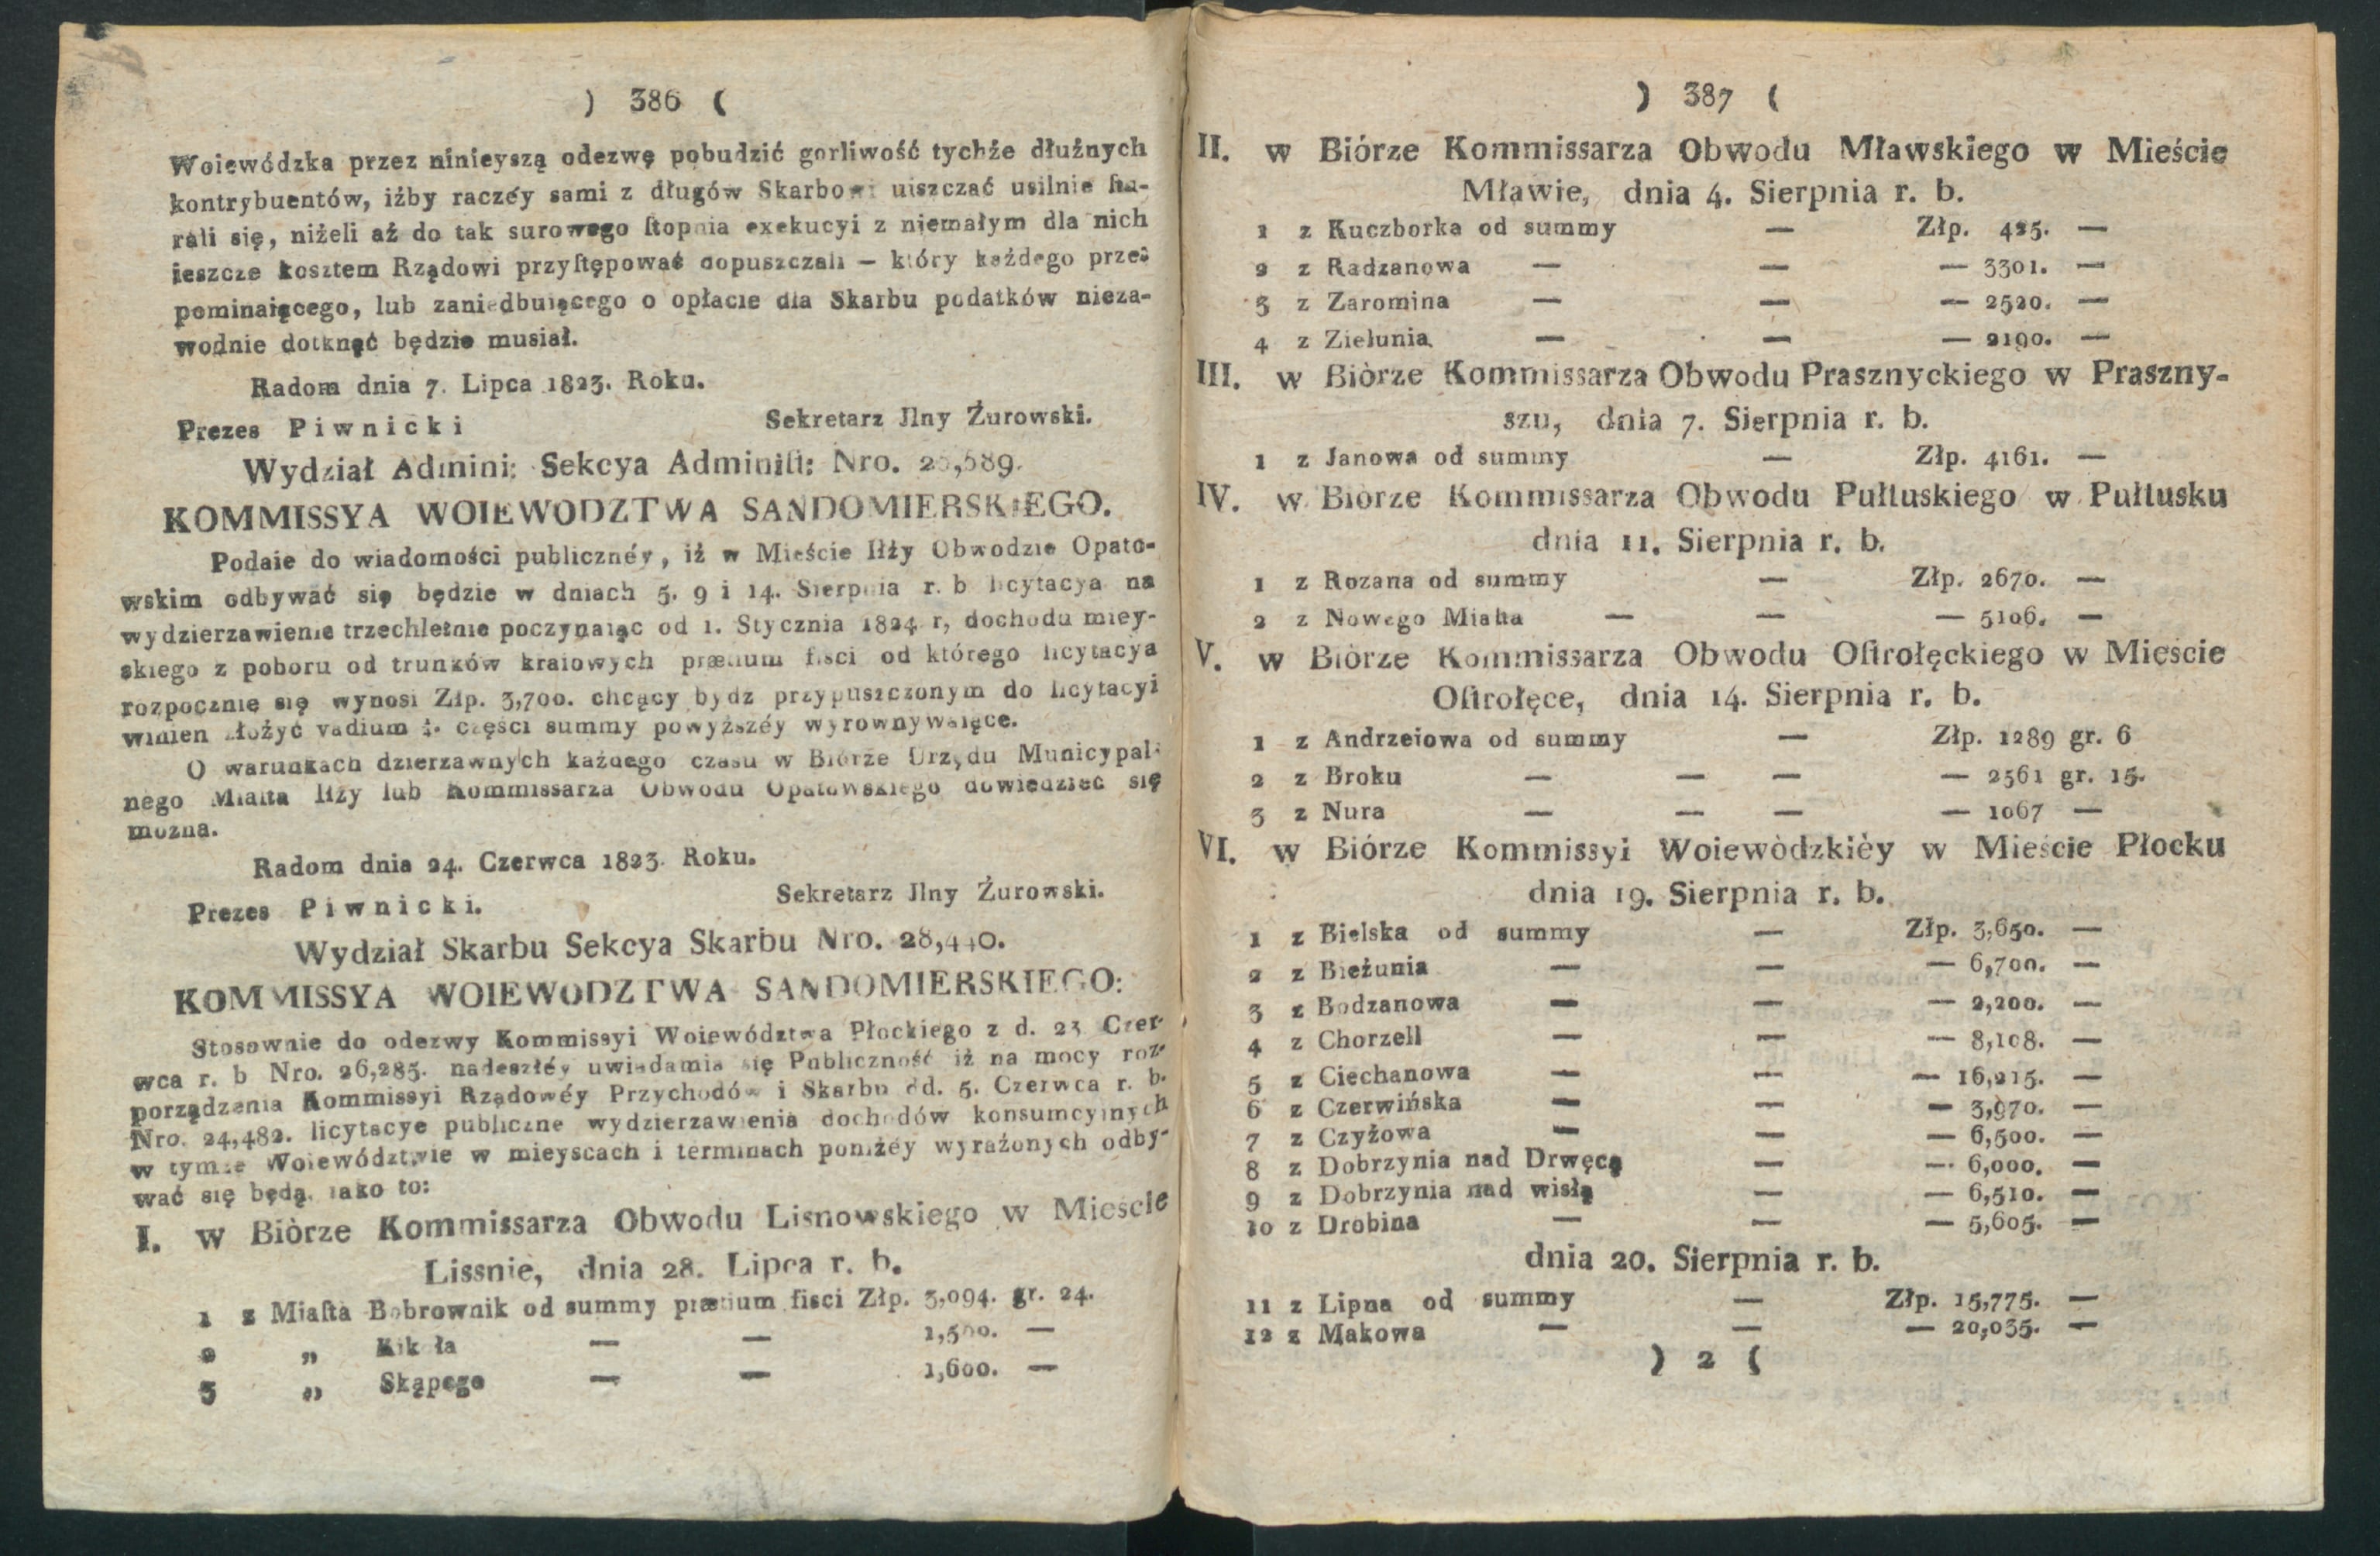 ) 386 (
Woiewódzka przez ninieyszą odezwę pobudzić gorliwość tychże dłużnych
kontrybuentów, iżby raczéy sami z długów Skarbowi uiszczać usilnie ſta-
rali się, niżeli aż do tak surowego ſtopnia exekucyi z niemałym dla nich
ieszcze kosztem Rządowi przyſtępować dopuszczali — który każdego prze-
pominaiącego, lub zaniedbuiącego o opłacie dla Skarbu podatków nieza-
wodnie dotknąć będzie musiał.
Radom dnia 7. Lipca 1823. Roku.
Prezes Piwnicki
Sekretarz Jlny Żurowski.
Wydział Admini: Sekcya Adminiſt: Nro.
KOMMISSYA WOIEWODZTWA SANDOMIERSKIEGO.
Podaie do wiadomości publicznéy, iż w Mieście Iłży Obwodzie Opato-
wskim odbywać się będzie w dniach 5. 9 i 14. Sierpnia r. b licytacya na
wydzierzawienie trzechletnie poczynaiąc od 1. Stycznia 1824 r, dochodu miey-
skiego z poboru od trunków kraiowych prætium fisci od którego licytacya
rozpocznie się wynosi Złp. 3,700. chcący bydz przypuszczonym do licytacyi
winien złożyć vadium części summy powyższéy wyrownywaiące.
O warunkach dzierzawnych każdego czasu w Biórze Urzędu Municypal-
nego Miaſta Iłży lub Kommissarza Obwodu Opatowskiego dowiedzieć się
mozna.
Radom dnia 24. Czerwca 1823. Roku.
Prezes Piwnicki.
Sekretarz Jlny Żurowski.
Wydział Skarbu Sekcya Skarbu Nro. 28,440.
KOMMISSYA WOIEWODZTWA SANDOMIERSKIEGO:
Stosownie do odezwy Kommissyi Woiewództwa Płockiego z d. 23 Czer-
wca r. b Nro. 26,285. nadeszłéy uwiadamia się Publiczność iż na mocy roz-
porządzenia Kommissyi Rządowéy Przychodów i Skarbu dd. 5. Czerwca r. b.
Nro. 24,482. licytacye publiczne wydzierzawienia dochodów konsumcyinych
w tymże Woiewództwie w mieyscach i terminach poniżéy wyrażonych odby-
wać się będą, iako to:
I. w Biòrze Kommissarza Obwodu Lisnowskiego w Mieście
Lissnie, dnia 28. Lipca r. b.
1 z Miaſta Bobrownik od summy prætium fisci Złp. 3,094. gr. 24.
2 „ Kikoła — — 1,500. —
3 „ Skąpego — — 1,600. —
) 387 (
II. w Biórze Kommissarza Obwodu Mławskiego w Mieście
Mławie, dnia 4. Sierpnia r. b.
1 z Kuczborka od summy — Złp. 425. —
2 z Radzanowa — — — 3301. —
3 z Zaromina — — — 2520. —
4 z Zielunia — — — 2190. —
III. w Biòrze Kommissarza Obwodu Prasznyckiego w Praszny-
szu, dnia 7. Sierpnia r. b.
1 z Janowa od summy — Złp. 4161. —
IV. w Biorze Kommissarza Obwodu Pułtuskiego w Pułtusku
dnia 11. Sierpnia r. b.
1 z Rozana od summy — Złp. 2670. —
2 z Nowego Miaſta — — — 5106. —
V. w Biòrze Kommissarza Obwodu Oſtrołęckiego w Mieście
Oſtrołęce, dnia 14. Sierpnia r. b.
1 z Andrzeiowa od summy — Złp. 1289 gr. 6
2 z Broku — — — — 2561 gr. 15.
3 z Nura — — — — 1067 —
VI. w Biórze Kommissyi Woiewòdzkièy w Mieście Płocku
dnia 19. Sierpnia r. b.
1 z Bielska od summy — Złp. 3,650. —
2 z Bieżunia — — — 6,700. —
3 z Bodzanowa — — — 2,200. —
4 z Chorzell — — — 8,108. —
5 z Ciechanowa — — — 16,215. —
6 z Czerwińska — — — 3,970. —
7 z Czyżowa — — — 6,500. —
8 z Dobrzynia nad Drwęcą — — 6,000. —
9 z Dobrzynia nad wisłą — — 6,510. —
10 z Drobina — — — 5,605. —
dnia 20. Sierpnia r. b.
11 z Lipna od summy — Złp. 15,775. —
12 z Makowa — — — 20,035. —
) 2 (